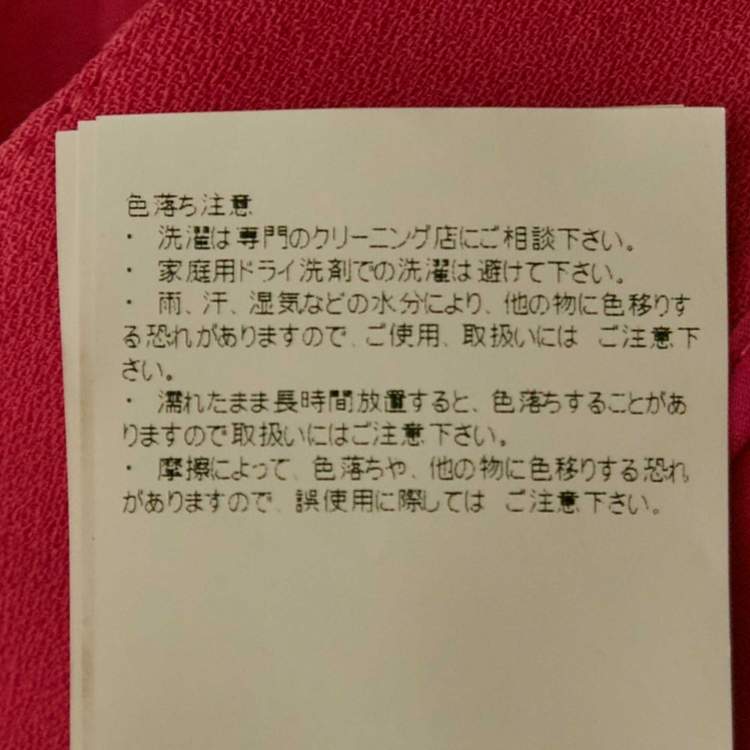 色落ち注意
・ 洗濯は専門のクリーニング店にご相談下さい。
・ 家庭用ドライ洗剤での洗濯は避けて下さい。
・ 雨、汗、湿気などの水分により、他の物に色移りす
る恐れがありますので、ご使用、取扱いには ご注意下
さい。
・ 濡れたまま長時間放置すると、色落ちすることがあ
りますので取扱いにはご注意下さい。
・ 摩擦によって、色落ちや、他の物に色移りする恐れ
がありますので、誤使用に際しては ご注意下さい。